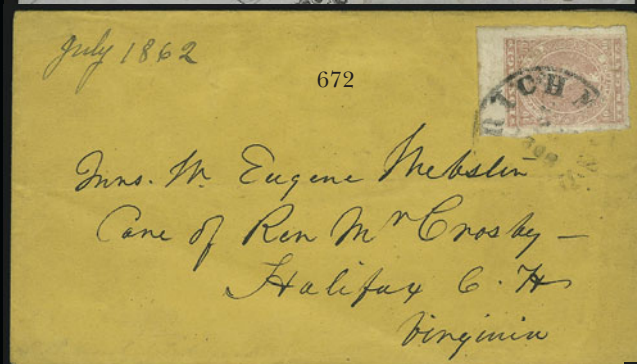 July 1862
672
RICH
Mrs. W. Eugene Webster
Care of Rev Mr Crosby —
Halifax C. H
Virginia